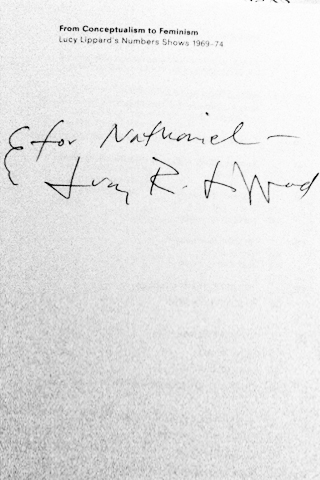 From Conceptualism to Feminism
Lucy Lippard's Numbers Shows 1969–74
for Nathaniel —
Lucy R. Lippard